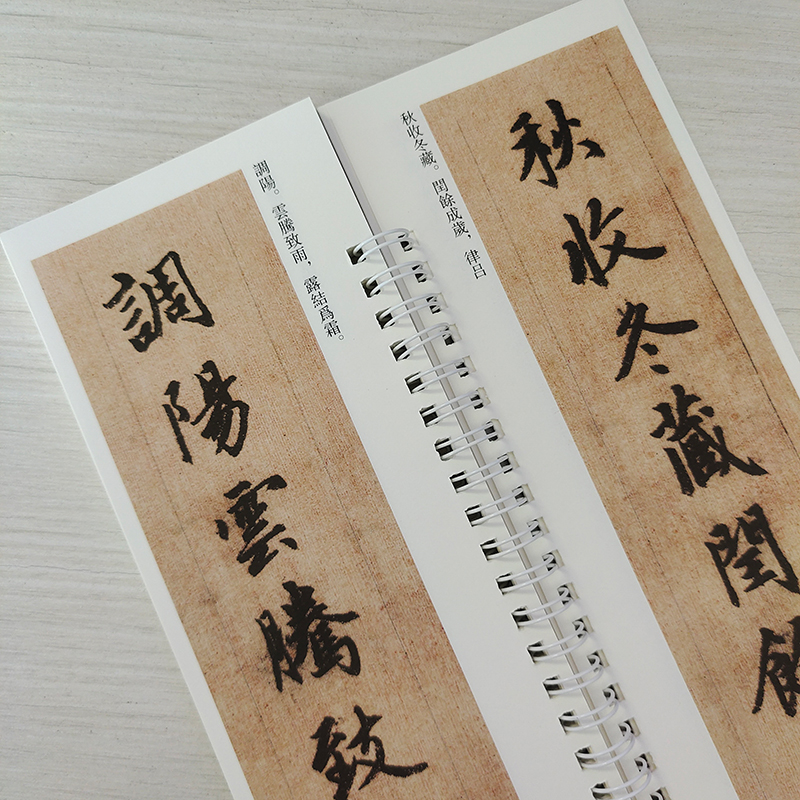 秋收冬藏。閏餘成歲，律吕
秋收冬藏閏餘
調陽。雲騰致雨，露結爲霜。
調陽雲騰致